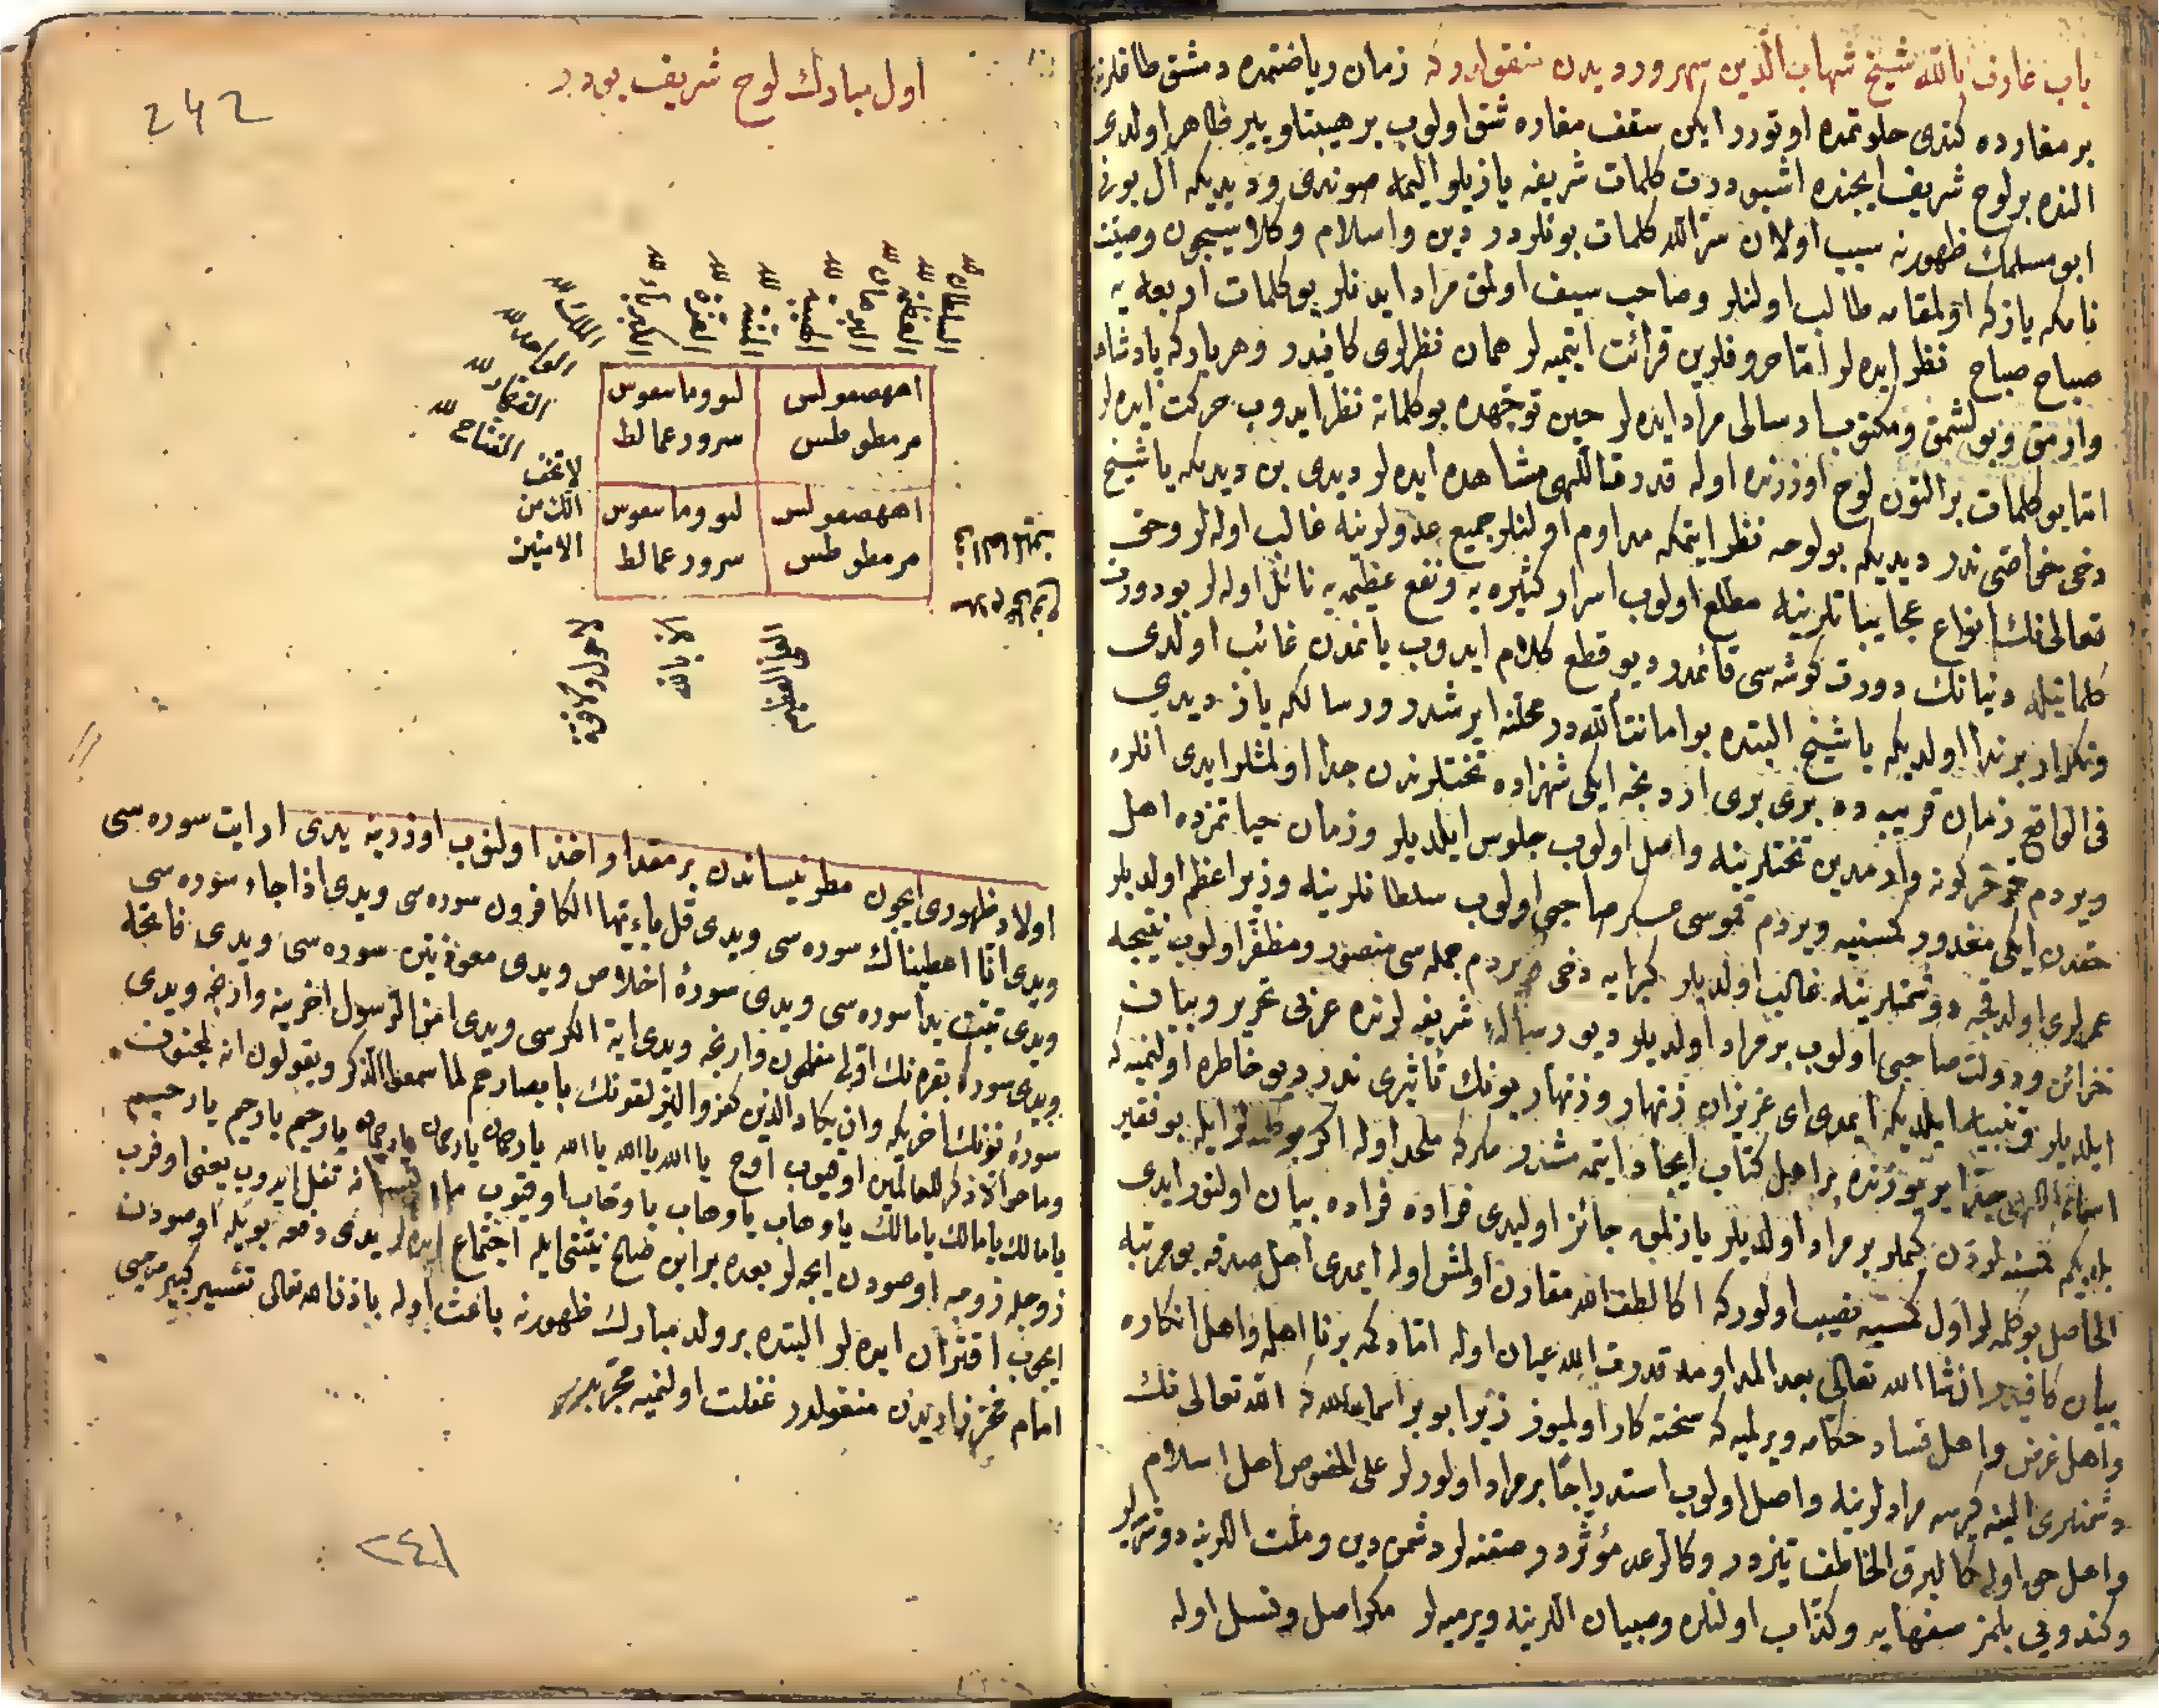 باب عارف بالله شیخ شهاب الدین سهروردیدن منقولدرکه زمان ریاضتمده دمشق طاغلرنده
بر مغارده کندی خلوتمده اوتورر ایکن سقف مغاره شق اولوب بر هیبتلو پیر ظاهر اولدی
النده بر لوح شریف ایچنده اشبو درت کلمات شریفه یازیلو الیمه صوندی و دیدیکه ال بونی
ابو مسلمك ظهورنه سبب اولان سر الله کلمات بونلردر دین و اسلام
یاز که اولمقامه طالب اولنلر و صاحب سیف اولمق مراد ایدنلر بو کلمات اربعه یه
صباح صباح نظر ایده لر اما حروفلرین قرائت ایتمیه لر همان نظرلری کافیدر و هر بار که پادشاه
وارمق و بولشمق و مکتوب ارسالی مراد ایده لر حین توجهده بو کلماته نظر ایدوب حرکت ایده لر
اما بو کلمات بر التون لوح اوزرنده اوله قدرت اللهی مشاهده ایده لر دیدی بن دیدیکه یا شیخ
دخی خاصتی ندر دیدیکه بو لوحه نظر ایتمکه مداوم اولنلر جمیع عدولرینه غالب اوله لر و حق
تعالی نك انواع عجایباتلرینه مطلع اولوب اسرار کثیره یه و نفع عظیمه یه نائل اوله لر بو دورت
کلماتیله دنیانك دورت کوشه سی قائمدر دیو قطع کلام ایدوب یانمدن غائب اولدی
و تکرار بر ندا اولدیکه یا شیخ البتده بو امانت الله در محلنه ایرشدر و رسالکه یاز دیدی
فی الواقع زمان قریبده بری بری اردنجه ایکی شهزاده تختلرندن جدا اولمشلر ایدی انلره
ویردم کونه وارمدین تختلرینه واصل اولوب جلوس ایلدیلر و زمان حیاتمزده اهل
حقدن ایکی مغدور کمسنیه ویردم صاحبی اولوب سلطانلرینه وزیر اعظم اولدیلر
عمرلری اولدقجه دوشمنلرینه غالب اولدیلر کبرایه دخی ویردم جمله سی منصور و مظفر اولوب نتیجه
خزائن و دولت صاحبی اولوب بر مراد اولدیلر دیو رساله شریفه لرنده عربی تحریر و بیان
ایلدیلر و تنبیه ایلدیکه ایمدی ای عزیزان زنهار و زنهار بونك تأثیری ندر دیو خاطره اولنمیه که
الحاصل بو کلمه لر اول کمسیه نصیب اولورکه اکا لطف الله مقارن اولمش اوله ایمدی اهل صدقه بو مرتبه
بیان کافیدر ان شاء الله تعالی بعد المداومه قدرت الله عیان اوله اما دکمه بر نا اهله و اهل انکاره
و اهل غرض و اهل فساد حکامه ویرلمیه که سخته کار اولمیوز زیرا بو بر اسماء الله که الله تعالی نك
دشمنلری الینه کیرسه مرادلرینه واصل اولوب استدراجا بر مراد اولورلر علی الخصوص اهل اسلام
و اهل حق اوله کالبرق الخاطف تیزدر و کالرعد مؤثردر صقنه لر دشمن دین و ملت اللرینه دوشرمیه لر
و کندویی بلمز سفهایه و کذاب اولنلره و صبیان اللرینه ویرمیه لر مکر اصل و نسل اوله
242
اول مبارك لوح شریف بودر
السلطان لله
العظمة لله
البرهان لله
الهیبة لله
المنة لله
العزة لله
الکبریاء لله
الملك لله
القهار لله
الفتاح لله
لا تخف
انك من
الامنین
اههصعولس
مرمطوطس
لوومامعوس
سرورعمالط
اههصعولس
مرمطوطس
لوومامعوس
سرورعمالط
لا حول ولا قوة
الا بالله
العلی العظیم
اولاد ظهوری ایچون مطر نیساندن بر مقدار اخذ اولنوب اوزرینه یدی ارایت سوره سی
ویدی انا اعطیناك سوره سی ویدی قل یا ایها الکافرون سوره سی ویدی اذا جاء سوره سی
ویدی تبت یدا سوره سی ویدی سورۀ اخلاص ویدی معوذتین سوره سی ویدی فاتحه
ویدی سورۀ بقره نك اولی مفلحون وارنجه ویدی ایة الکرسی ویدی امن الرسول اخرینه وارنجه ویدی
سورۀ نونك اخریکه وان یکاد الذین کفروا لیزلقونك بابصارهم لما سمعوا الذکر ویقولون انه لمجنون
وما هو الا ذکر للعالمین اوقیوب اوچ یا الله یا الله یا الله یا رحمان یا رحمان یا رحمان یا رحیم یا رحیم یا رحیم
یا مالك یا مالك یا مالك یا وهاب یا وهاب یا وهاب اوقیوب ماء نیسانه تفل ایدوب یعنی اوفرب
زوجله زوجه اوصودن ایچه لر بعده بر ابن صالح نیتی ایله اجتماع ایده لر یدی دفعه بویله اوصودن
ایچوب اقتران ایده لر البتده بر ولد مبارك ظهورنه باعث اوله باذن الله تعالی تفسیر کبیر صاحبی
امام فخر رازیدن منقولدر غفلت اولنمیه مجربدر
٢٤١